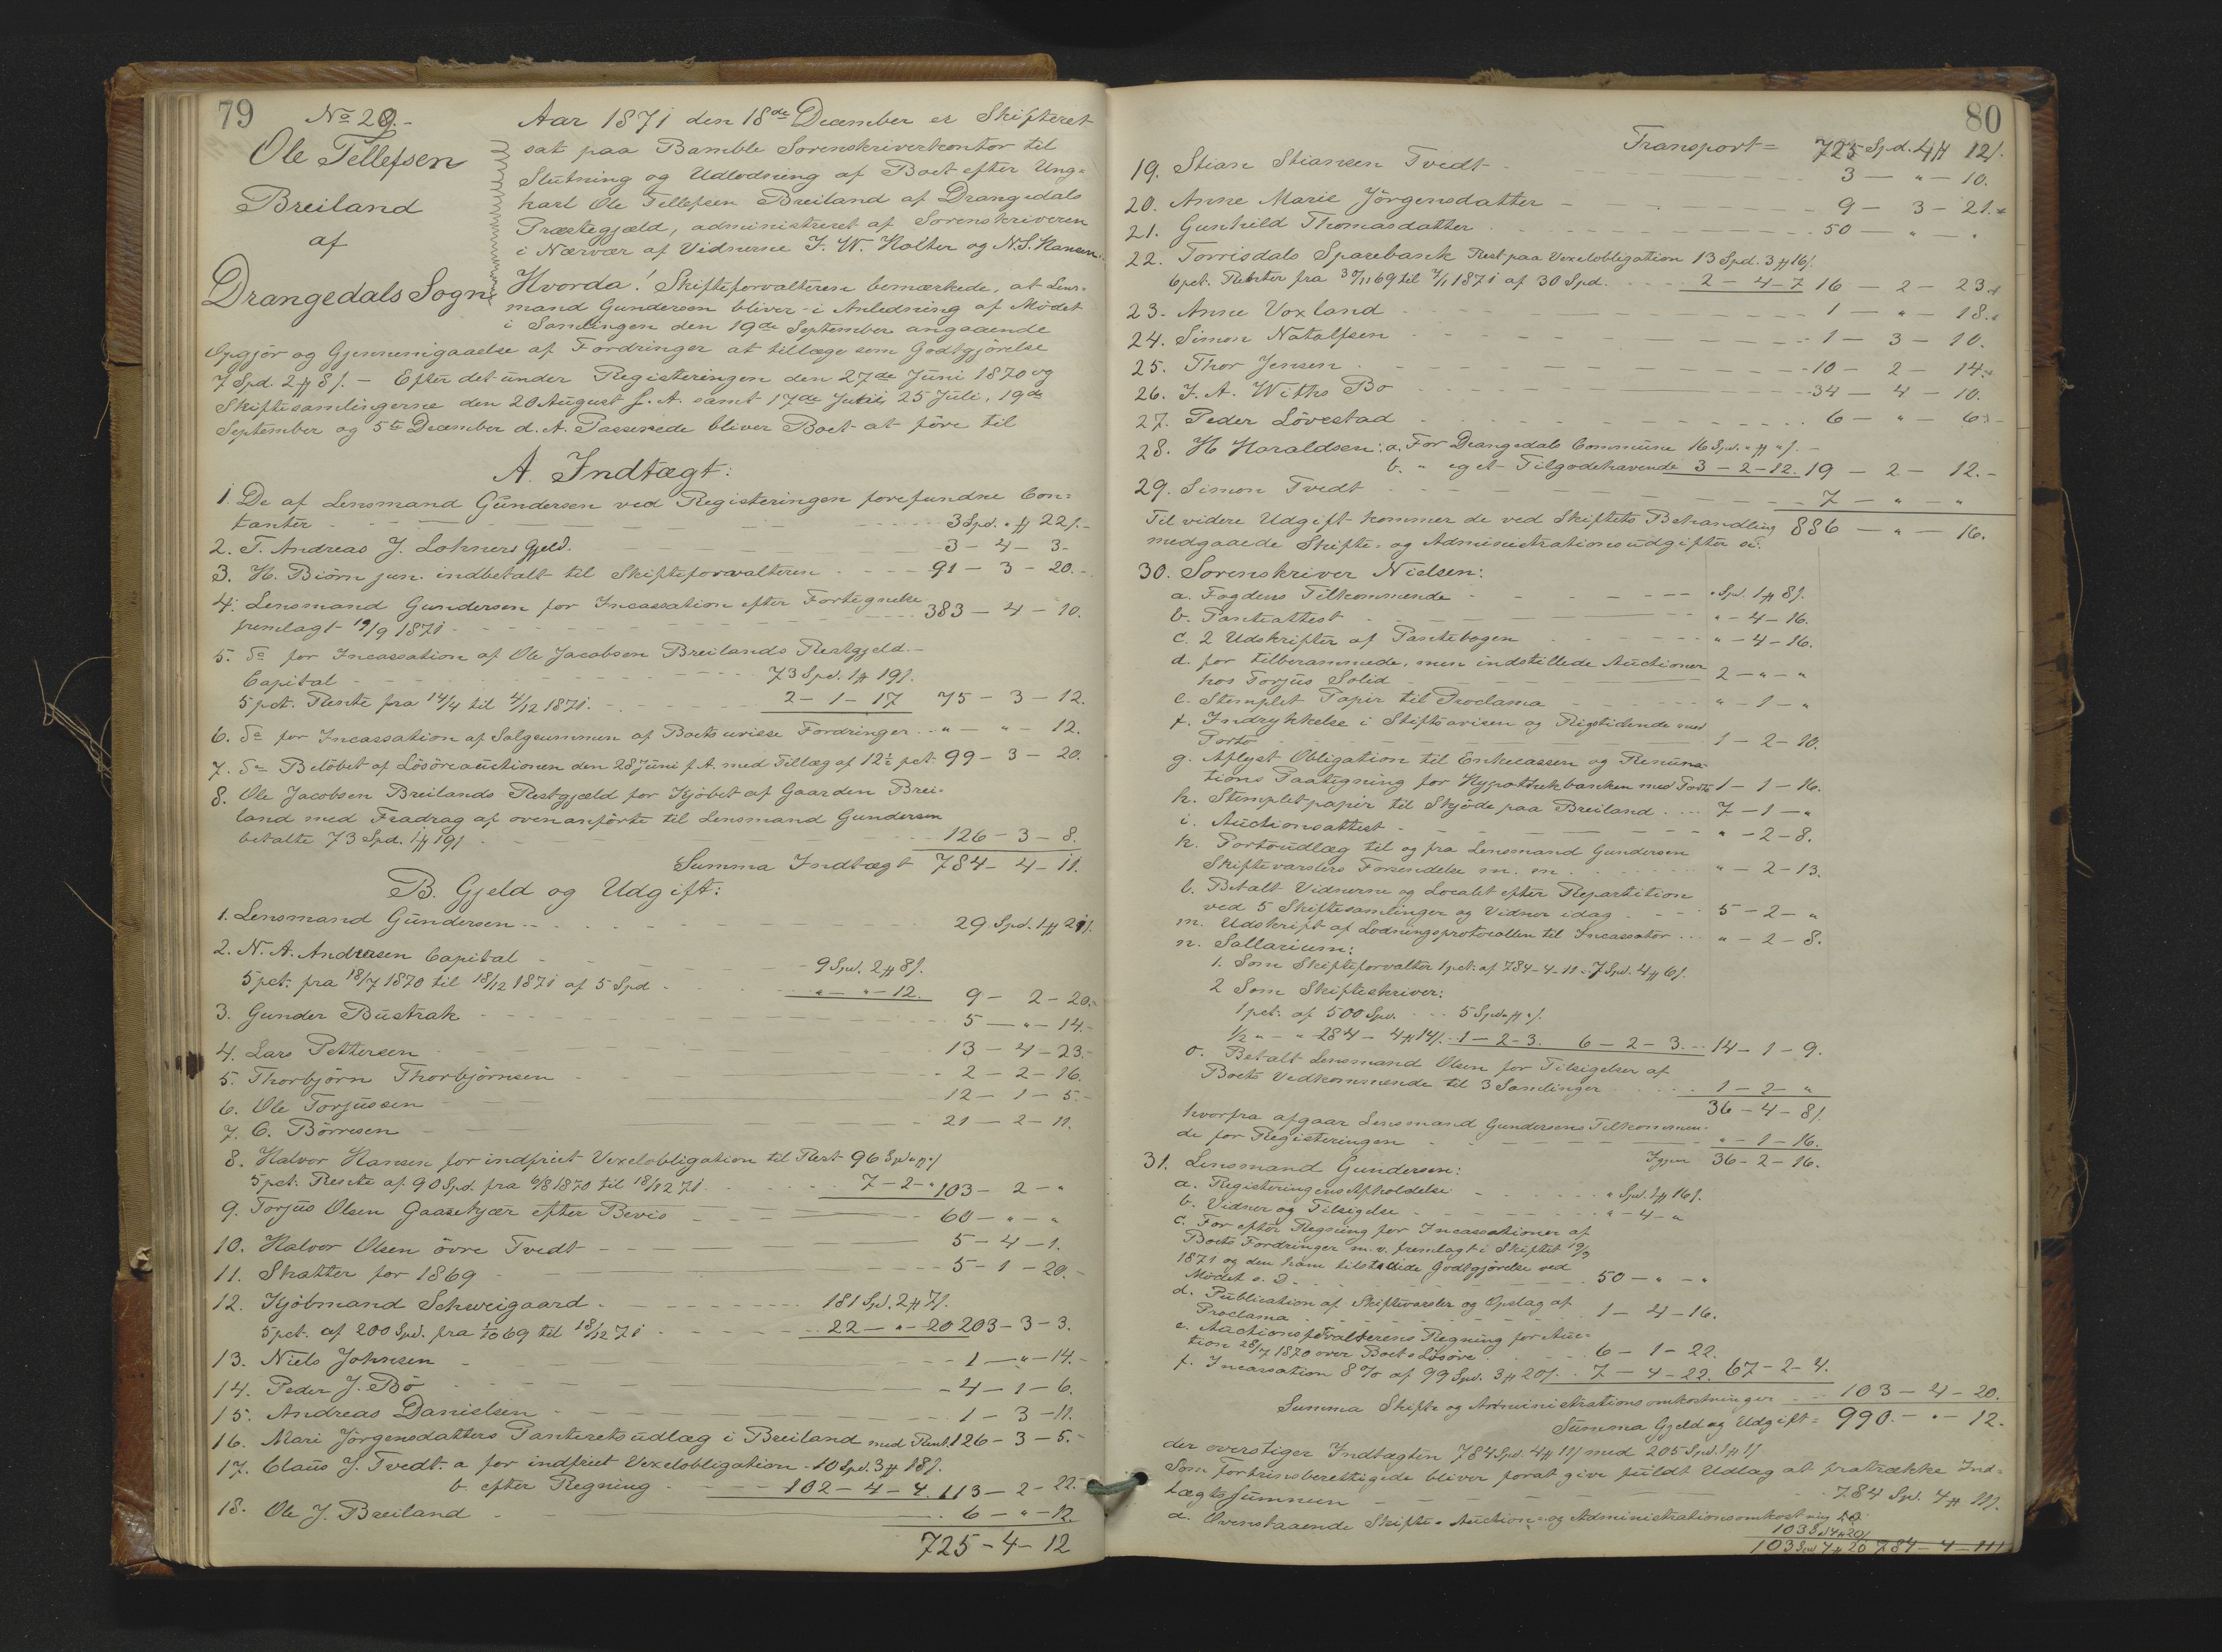 79
No 29.-
Ole Tellefsen
Breiland
af
Drangedals Sogn
Aar 1871 den 18de December er Skifteret
sat paa Bamble Sorenskriverkontor til
Slutning og Udlodning af Boet efter Ung=
karl Ole Tellefsen Breiland af Drangedals
Præstegjæld, administreret af Sorenskriveren
i Nærvær af Vidnerne J. W. Holter og N.S. Hansen.
Hvorda! Skifteforvalteren bemærkede, at Lens=
mand Gundersen bliver i Anledning af Mødet
i Samlingen den 19de September angaaende
Opgjør og Gjennemgaaelse af Fordringer at tillægge som Godtgjörelse
7 Spd. 2 # 8/. - Efter det under Registeringen den 27de Juni 1870 og
Skiftesamlingerne den 20 August f. A. samt 17de Juni 25 Juli, 19de
September og 5te December d. A. Passerede bliver Boet at före til
A. Indtægt:
1. De af Lensmand Gundersen ved Registeringen forefundne Con=
tanter - 3 Spd. " # 22/. -
2. T. Andreas J. Lohners Gjeld. - 3 - 4 - 3 -
3. H. Biörn jun. indbetalt til Skifteforvalteren - 91 - 3 - 20. -
4. Lensmand Gundersen for Incassation efter Fortegnelse
fremlagt 19/9 1871 - 383 - 4 - 10.
5. Do for Incassation af Ole Jacobsen Breilands Restgjeld. -
Capital - 73 Spd. 1 # 19/.
5 pct. Rente fra 14/4 til 4/12 1871. - 2 - 1 - 17 75 - 3 - 12.
6. Do for Incassation af Salgsummen af Boets uvisse Fordringer .. " - " - 12.
7. Do Belöbet af Lösöreauctionen den 28 Juni f. A. med Tillæg af 12½ pct. 99 - 3 - 20.
8. Ole Jacobsen Breilands Restgjæld for Kjöbet af Gaarden Brei=
land med Fradrag af ovenanförte til Lensmand Gundersen
betalte 73 Spd. 1 # 19/ - 126 - 3 - 8.
Summa Indtægt 784 - 4 - 11.
B. Gjeld og Udgift:
1. Lensmand Gundersen - 29 Spd. 1 # 21/.
2. N. A. Andersen Capital - 9 Spd. 2 # 8/.
5 pct. fra 18/7 1870 til 18/12 1871 af 5 Spd - " - " - 12. 9 - 2 - 20. -
3. Gunder Bustrak - 5 - " - 14. -
4. Lars Pettersen - 13 - 4 - 23. -
5. Thorbjörn Thorbjörnsen - 2 - 2 - 16.
6. Ole Torjussen - 12 - 1 - 5. -
7. C. Börresen - 21 - 2 - 11.
8. Halvor Hansen for indfriet Vexelobligation til Rest 96 Spd " # " /
5 pct. Rente af 90 Spd. fra 6/8 1870 til 18/12 71. - 7 - 2 - " 103 - 2 - "
9. Torjus Olsen Gaasekjær efter Bevis - 60 - " - "
10. Halvor Olsen övre Tvedt - 5 - 4 - 1.
11. Skatter for 1869 - 5 - 1 - 20. -
12. Kjöbmand Schweigaard - 181 Spd. 2 # 7/.
5 pct. af 200 Spd. fra 1/10 69 til 18/12 71 - 22 - " - 20 203 - 3 - 3.
13. Niels Johnsen - 1 - " - 14. -
14. Peder J. Bö - 4 - 1 - 6.
15. Andreas Danielsen - 1 - 3 - 11.
16. Mari Jörgensdatters Panteretsudlæg i Breiland med Rent. 126 - 3 - 5. -
17. Claus J. Tvedt. a for indfriet Vexelobligation - 10 Spd. 3 # 18/.
b. efter Regning - 102 - 4 - 4. 113 - 2 - 22. -
18. Ole J. Breiland - 6 - " - 12.
725 - 4 - 12
80
Transport = 725 Spd. 4 # 12/.
19. Stian Stiansen Tvedt - 3 - " - 10.
20. Anne Marie Jörgensdatter - 9 - 3 - 21.
21. Gunhild Thomasdatter - 50 - " - "
22. Torrisdals Sparebank Rest paa Vexelobligation 13 Spd. 3 # 16/.
6 pct. Renter fra 30/11 69 til 7/1 1871 af 30 Spd. - 2 - 4 - 7 16 - 2 - 23.
23. Anne Voxland - 1 - " - 18.
24. Simon Natalfsen - 1 - 3 - 10.
25. Thor Jensen - 10 - 2 - 14.
26. J. A. Withs Bo - 34 - 4 - 10.
27. Peder Lövestad - 6 - " - 6. -
28. H Haraldsen: a, For Drangedals Commune 16 Spd. " # " /. -
b. " eget Tilgodehavende 3 - 2 - 12. 19 - 2 - 12. -
29. Simon Tvedt - 7 - " - "
Til videre Udgift kommer de ved Skiftets Behandling 886 - " - 16.
medgaaede Skifte- og Administrationsudgifter s.:
30. Sorenskriver Nielsen:
a. Fogdens Tilkommende - " Spd. 1 # 8/.
b. Panteattest - " - 4 - 16.
c. 2 Udskrifter af Pantebogen - " - 4 - 16.
d. for tilberammede, men indstillede Auctioner
hos Torjus Solid - 2 - " - "
e. Stemplet Papir til Proclama - " - 1 - "
f. Indrykkelse i Stiftsavisen og Rigstidende med
Porto - 1 - 2 - 10.
g. Aflyst Obligation til Enkecassen og Renun=
tions Paategning for Hypothekbanken med Porto 1 - 1 - 16.
h. Stempletpapir til Skjöde paa Breiland ... 7 - 1 - "
i. Auctionsattest - " - 2 - 8.
k. Portoudlæg til og fra Lensmand Gundersen
Skiftevarslers Forsendelse m. m. - " - 2 - 13.
l. Betalt Vidnerne og Localet efter Repartition
ved 5 Skiftesamlinger og Vidner idag - 5 - 2 - "
m. Udskrift af Lodningsprotocollen til Incassator ... " - 2 - 8.
n. Sallarium:
1. Som Skifteforvalter 1 pct. af 784 - 4 - 11 - 7 Spd. 4 # 6/.
2 Som Skifteskriver:
1 pct. af 500 Spd. ... 5 Spd " # " /.
1/2 " - " 284 - 4 # 14/. - 1 - 2 - 3. 6 - 2 - 3. - 14 - 1 - 9.
o. Betalt Lensmand Olsen for Tilsigelser af
Boets Vedkommende til 3 Samlinger - 1 - 2 - "
36 - 4 - 8/.
hvorfra afgaar Lensmand Gundersens Tilkommen=
de for Registeringen - " - 1 - 16.
Igjen 36 - 2 - 16.
31. Lensmand Gundersen:
a. Registeringens Afholdelse - " Spd. 1 # 16/.
b. Vidner og Tilsigelse - " - 4 - "
c. For efter Regning for Incassationer af
Boets Fordringer m. v. fremlagt i Skiftet 19/9
1871 og den ham tilstaaede Godtgjörelse ved
Mödet s. D. - 50 - " - "
d. Publication af Skiftevarsler og Opslag af
Proclama - 1 - 4 - 16.
e. Auctionsforvalterens Regning for Auc=
tion 28/7 1870 over Boets Lösöre - 6 - 1 - 22.
f. Incassation 8 % af 99 Spd. 3 # 20/. - 7 - 4 - 22. 67 - 2 - 4.
Summa Skifte og Administrationsomkostninger - 103 - 4 - 20.
Summa Gjeld og Udgift = 990. - " - 12.
der overstiger Indtægten 784 Spd. 4 # 11/ med 205 Spd. 1 # 1/.
Som Fortrinsberettigede bliver forat give fuldt Udlæg at fratrække Ind=
tægtssummen - 784 Spd. 4 # 11/.
a. Ovenstaaende Skifte- Auctions- og Administrationsomkostning
103 Spd 4 # 20/
103 Spd 4 # 20 784 - 4 - 11/